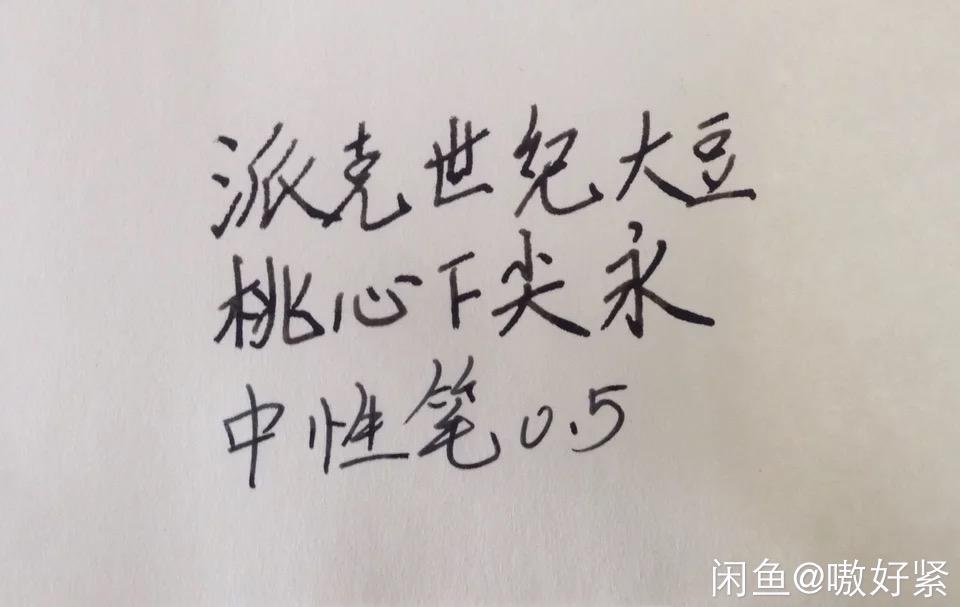 派克世纪大豆
桃心下尖永
中性笔0.5
闲鱼@嗷好紧